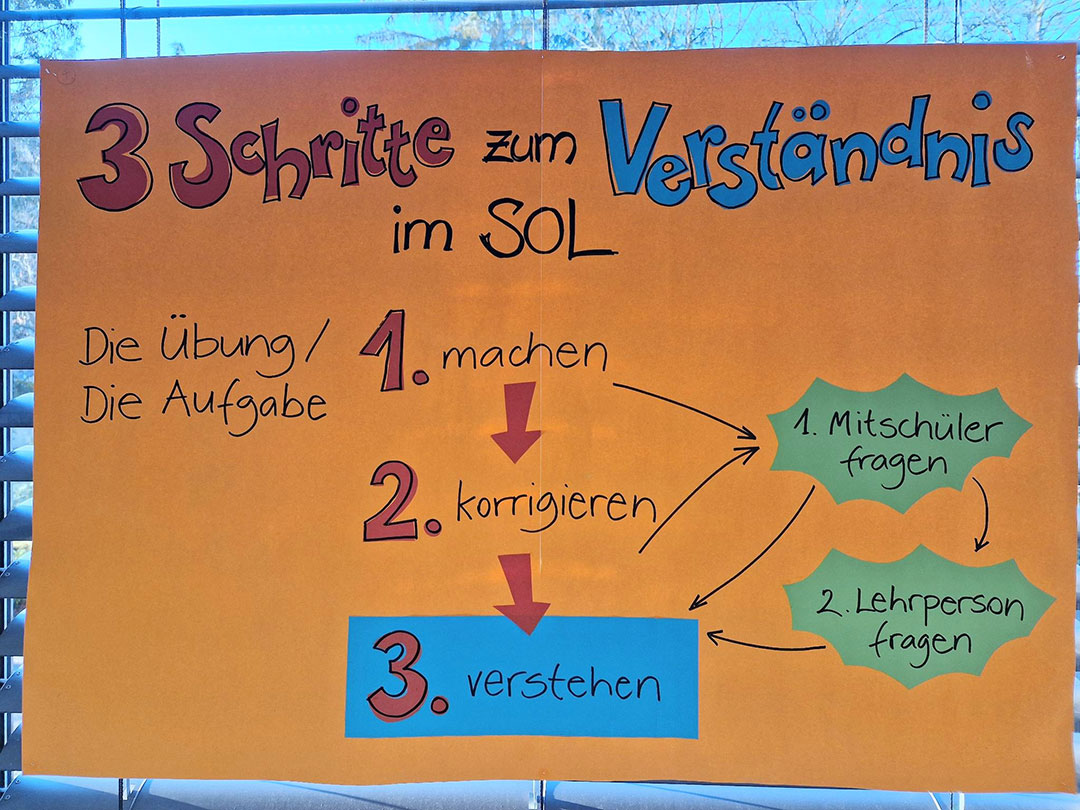 3 Schritte zum Verständnis
im SOL
Die Übung/
Die Aufgabe
1. machen
2. korrigieren
3. verstehen
1. Mitschüler
fragen
2. Lehrperson
fragen